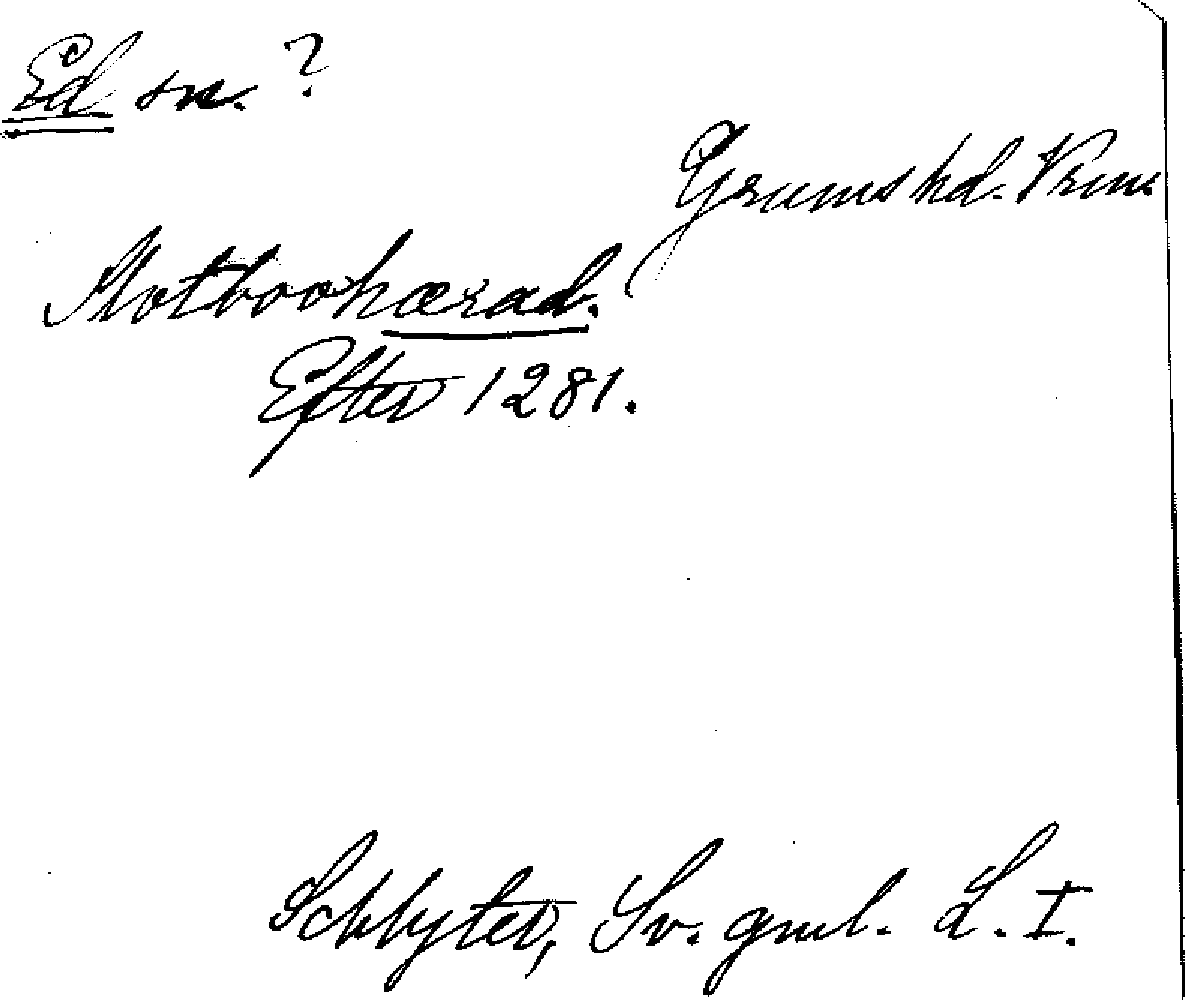 Ed sn. ?
Grums hd. Vrm.
Motboohærad.
Efter 1281.
Schlyter, Sv. gml. L. I.